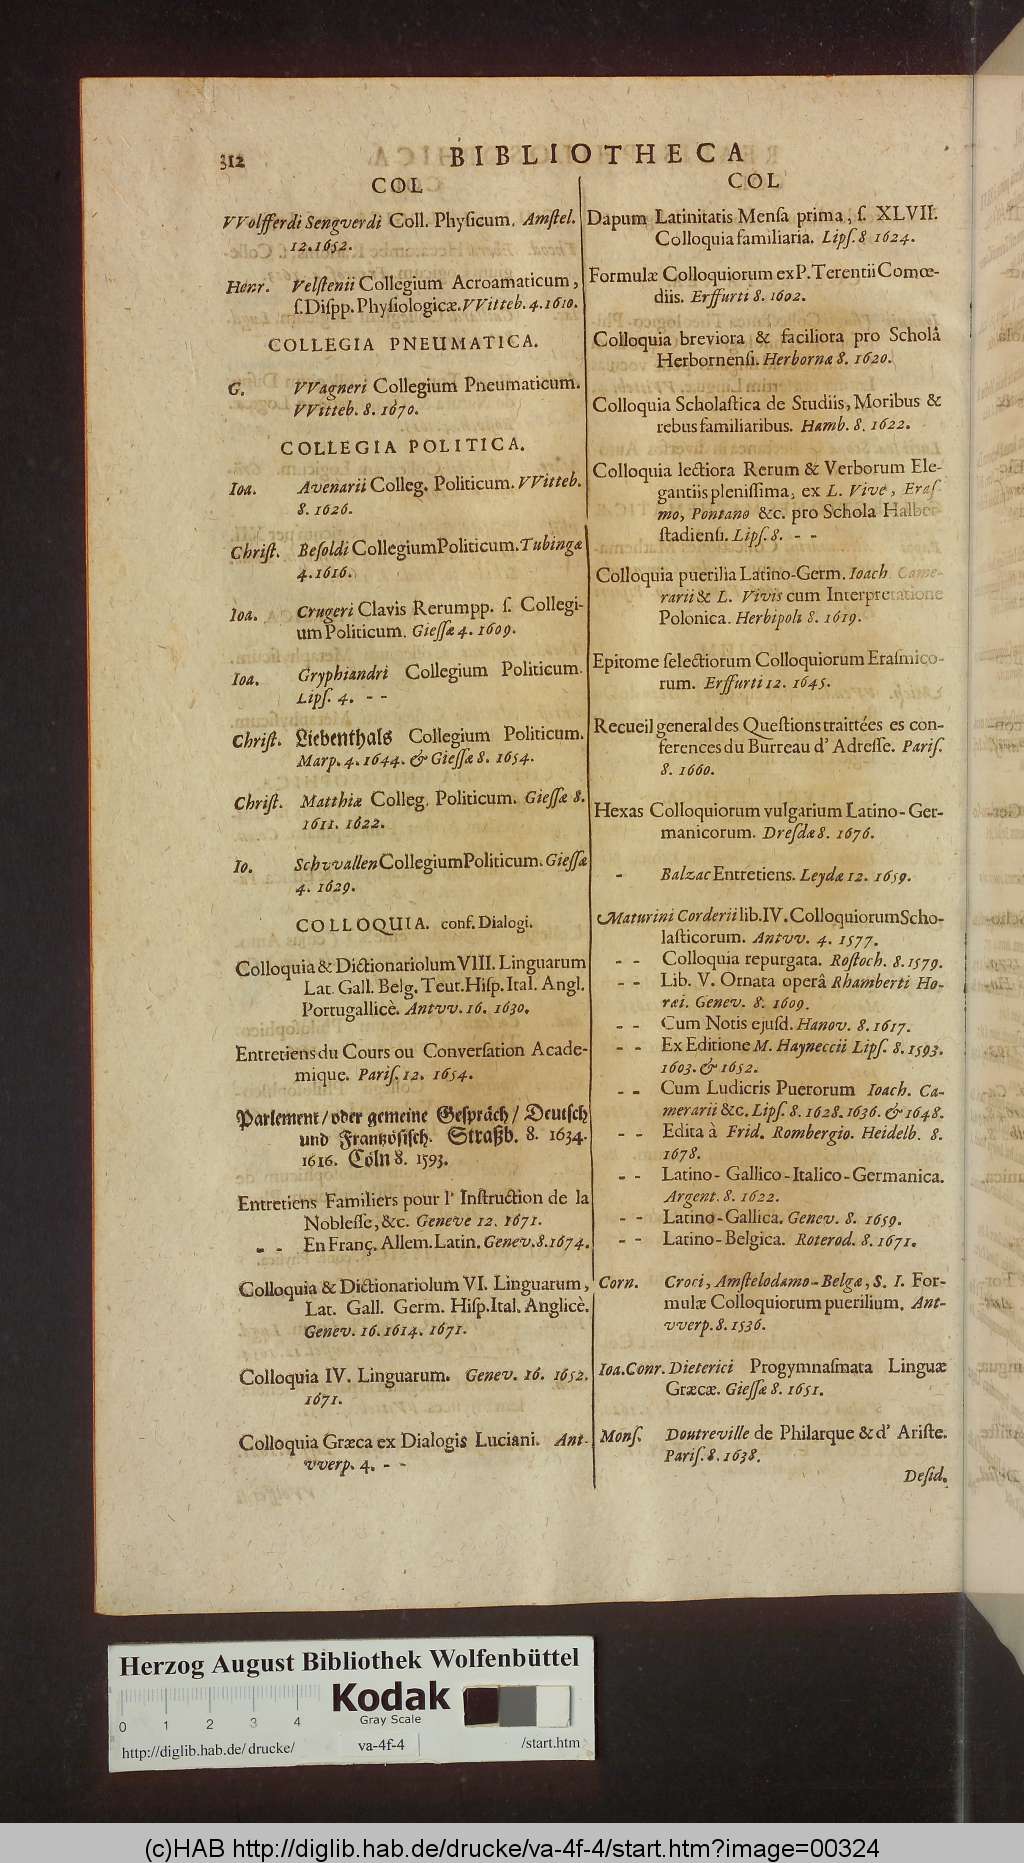 312
BIBLIOTHECA
COL
VVolfferdi Sengverdi Coll. Phyſicum. Amſtel.
12. 1652.
Henr. Velſtenii Collegium Acroamaticum,
ſ. Diſpp. Phyſiologicæ. VVitteb. 4. 1610.
COLLEGIA PNEUMATICA.
G. VVagneri Collegium Pneumaticum.
VVitteb. 8. 1670.
COLLEGIA POLITICA.
Ioa. Avenarii Colleg. Politicum. VVitteb.
8. 1626.
Chriſt. Beſoldi Collegium Politicum. Tubingæ
4. 1616.
Ioa. Crugeri Clavis Rerumpp. ſ. Collegi-
um Politicum. Gieſſæ 4. 1609.
Ioa. Gryphiandri Collegium Politicum.
Lipſ. 4. - -
Chriſt. Liebenthals Collegium Politicum.
Marp. 4. 1644. & Gieſſæ 8. 1654.
Chriſt. Matthiæ Colleg. Politicum. Gieſſæ 8.
1611. 1622.
Io. Schvvallen Collegium Politicum. Gieſſæ
4. 1629.
COLLOQUIA. conf. Dialogi.
Colloquia & Dictionariolum VIII. Linguarum
Lat. Gall. Belg. Teut. Hiſp. Ital. Angl.
Portugallicè. Antvv. 16. 1630.
Entretiens du Cours ou Converſation Acade-
mique. Pariſ. 12. 1654.
Parlement / oder gemeine Geſpräch / Deutſch
und Frantzöſiſch. Straßb. 8. 1634.
1616. Cöln 8. 1593.
Entretiens Familiers pour l' Inſtruction de la
Nobleſſe, &c. Geneve 12. 1671.
- - En Franç. Allem. Latin. Genev. 8. 1674.
Colloquia & Dictionariolum VI. Linguarum,
Lat. Gall. Germ. Hiſp. Ital. Anglicè.
Genev. 16. 1614. 1671.
Colloquia IV. Linguarum. Genev. 16. 1652.
1671.
Colloquia Græca ex Dialogis Luciani. Ant-
vverp. 4. - -
COL
Dapum Latinitatis Menſa prima, ſ. XLVII.
Colloquia familiaria. Lipſ. 8 1624.
Formulæ Colloquiorum ex P. Terentii Comœ-
diis. Erffurti 8. 1602.
Colloquia breviora & faciliora pro Scholâ
Herbornenſi. Herbornæ 8. 1620.
Colloquia Scholaſtica de Studiis, Moribus &
rebus familiaribus. Hamb. 8. 1622.
Colloquia lectiora Rerum & Verborum Ele-
gantiis pleniſſima, ex L. Vive, Eraſ-
mo, Pontano &c. pro Schola Halber-
ſtadienſi. Lipſ. 8. - -
Colloquia puerilia Latino-Germ. Ioach. Came-
rarii & L. Vivis cum Interpretatione
Polonica. Herbipoli 8. 1619.
Epitome ſelectiorum Colloquiorum Eraſmico-
rum. Erffurti 12. 1645.
Recueil general des Queſtions traittées es con-
ferences du Burreau d' Adreſſe. Pariſ.
8. 1660.
Hexas Colloquiorum vulgarium Latino-Ger-
manicorum. Dreſdæ 8. 1676.
- Balzac Entretiens. Leydæ 12. 1659.
Maturini Corderii lib. IV. Colloquiorum Scho-
laſticorum. Antvv. 4. 1577.
- - Colloquia repurgata. Roſtoch. 8. 1579.
- - Lib. V. Ornata operâ Rhamberti Ho-
ræi. Genev. 8. 1609.
- - Cum Notis ejuſd. Hanov. 8. 1617.
- - Ex Editione M. Hayneccii Lipſ. 8. 1593.
1603. & 1652.
- - Cum Ludicris Puerorum Ioach. Ca-
merarii &c. Lipſ. 8. 1628. 1636. & 1648.
- - Edita à Frid. Rombergio. Heidelb. 8.
1678.
- - Latino-Gallico-Italico-Germanica.
Argent. 8. 1622.
- - Latino-Gallica. Genev. 8. 1659.
- - Latino-Belgica. Roterod. 8. 1671.
Corn. Croci, Amſtelodamo-Belgæ, S. I. For-
mulæ Colloquiorum puerilium. Ant-
vverp. 8. 1536.
Ioa. Conr. Dieterici Progymnaſmata Linguæ
Græcæ. Gieſſæ 8. 1651.
Monſ. Doutreville de Philarque & d' Ariſte.
Pariſ. 8. 1638.
Deſid.
Herzog August Bibliothek Wolfenbüttel
Kodak
Gray Scale
0 1 2 3 4
http://diglib.hab.de/drucke/ va-4f-4 /start.htm
(c)HAB http://diglib.hab.de/drucke/va-4f-4/start.htm?image=00324